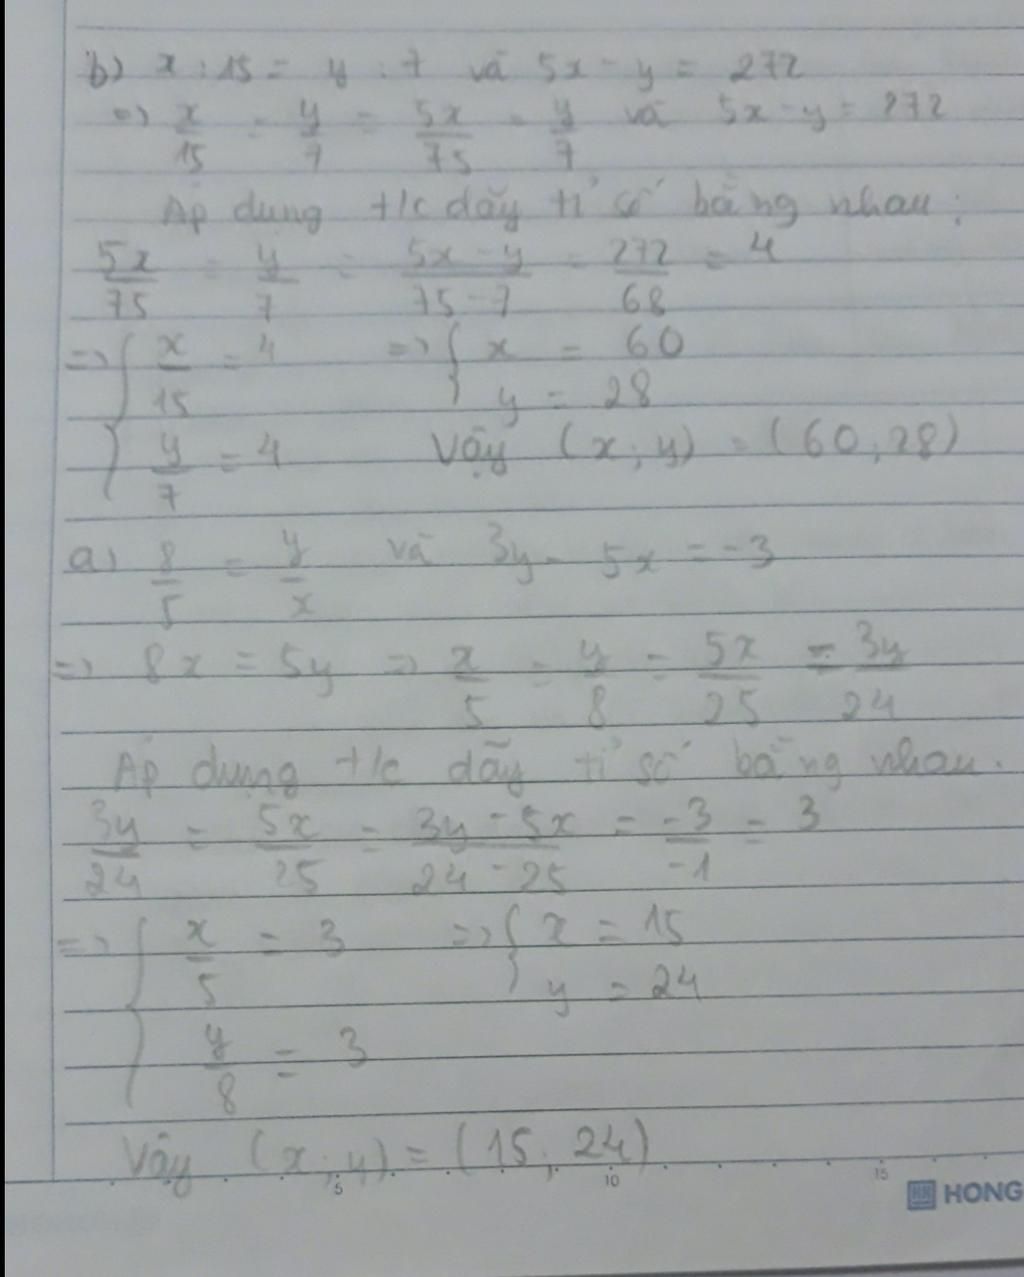 b) x : 15 = y : 7 và 5x - y = 272
=> x/15 = y/7 = 5x/75 = y/7 và 5x - y = 272
Áp dụng t/c dãy tỉ số bằng nhau:
5x/75 = y/7 = 5x - y/75 - 7 = 272/68 = 4
=> { x/15 = 4 => { x = 60
y = 28
y/7 = 4 Vậy (x; y) = (60; 28)
a) 8/5 = y/x và 3y - 5x = -3
=> 8x = 5y => x/5 = y/8 = 5x/25 = 3y/24
Áp dụng t/c dãy tỉ số bằng nhau.
3y/24 = 5x/25 = 3y - 5x/24 - 25 = -3/-1 = 3
=> { x/5 = 3 => { x = 15
y = 24
y/8 = 3
Vậy (x; y) = (15; 24)
5 10 15
HONG